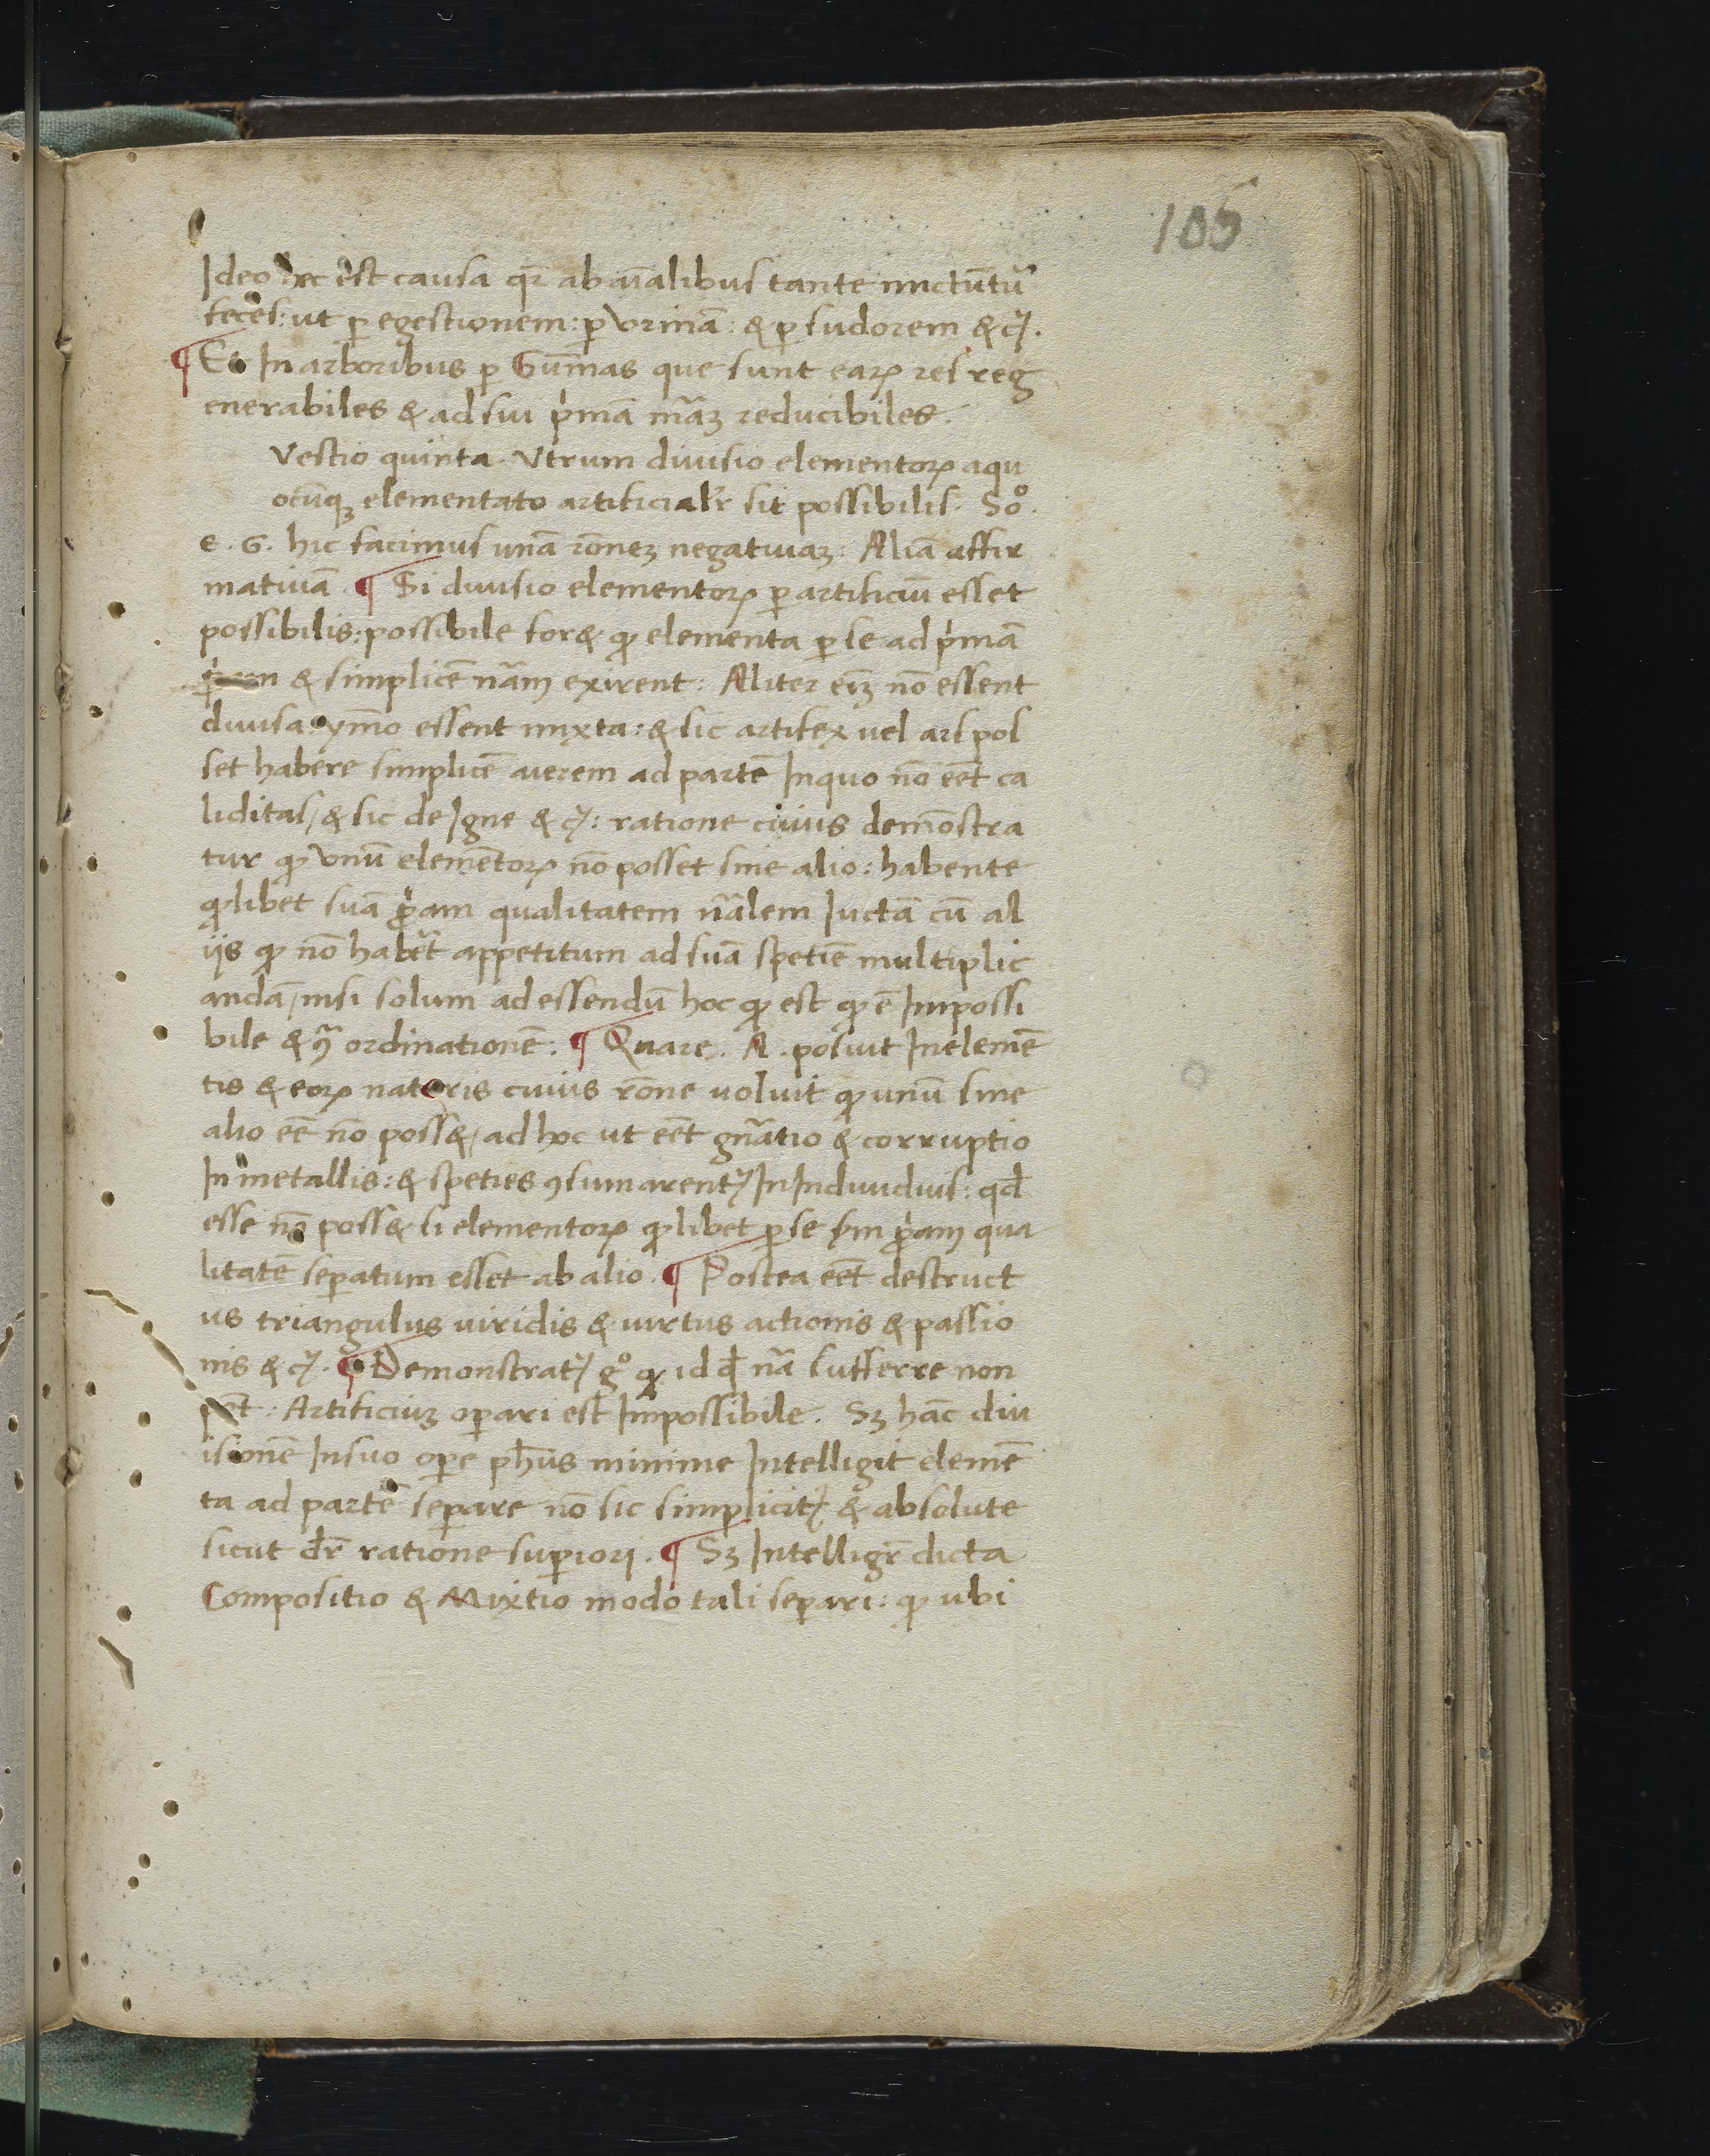 105
Ideo hec est causa qr̄ ab aīalibus tante mictūtur̄
feces: ut ꝑ egestionem: ꝑ vrinā: & ꝑ sudorem & cꝫ.
¶ Et In arboribus ꝑ Gum̄as que sunt earꝝ res reg
enerabiles & ad sui pͥmā mãꝫ reducibiles.
Vestio quinta. Vtrum diuisio elementorꝝ aqu
ocūqꝫ elementato artificialr̄ sit possibilis. Soͦ.
e. G. hic facimus unā rōneꝫ negatiuaꝫ: Aliā affir
matiuā. ¶ Si diuisio elementorꝝ ꝑ artificiū esset
possibilis: possibile for& ꝙ elementa ꝑ se ad pͥmā
& simplicē nãm exirent: Aliter eīꝫ nō essent
diuisa. ymō essent mixta: & sic artifex uel ars pos
set habere simplicē aerem ad partē Inquo nō eēt ca
liditas, & sic de Igne & cꝫ: ratione cuius demōstra
tur ꝙ vnū elemētorꝝ nō posset sine alio: habente
ꝙlibet suā pͥam qualitatem nãlem Iuctā cū al
ijs ꝙ nō habēt appetitum ad suā spetiē multiplic
andā, nisi solum ad essendū hoc ꝙ est ꝙ ē Impossi
bile & ꝯͣ ordinationē: ¶ Quare. A. posuit Inelemē
tis & eorꝝ naturis cuius rōne uoluit ꝙ unū sine
alio eē nō poss&, ad hoc ut eēt gn̄atio & corruptio
In metallis: & speties ꝯsumarentꝫ In Indiuiduis: qd̄
esse nō poss& si elementorꝝ ꝙlibet ꝑ se s̄m pͥam qua
litatē seꝑatum esset ab alio. ¶ Postea eēt destruct
us triangulus uiridis & uirtus actionis & passio
nis & cꝫ. ¶ Demonstratꝫ gͦ ꝙ id qd̄ nã sufferre non
pōt: Artificiuꝫ oꝑari est Impossibile. Sꝫ hāc diu
isionē Insuo oꝑe ph̄us minime Intelligit elemē
ta ad partē seꝑare nō sic simplicitꝫ & absolute
sicut dr̄ ratione suꝑiori. ¶ Sꝫ Intelligr̄ dicta
Compositio & Mixtio modo tali seꝑari: ꝙ ubi